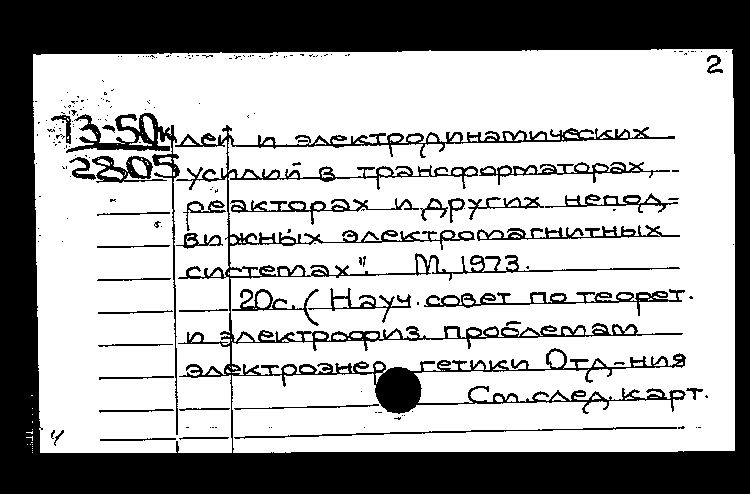 2
73-50к лей и электродинамических
2805 усилий в трансформаторах,
реакторах и других непод-
вижных электромагнитных
системах". М., 1973.
20с. (Науч. совет по теорет.
и электрофиз. проблемам
электроэнергетики Отд-ния
См. след. карт.